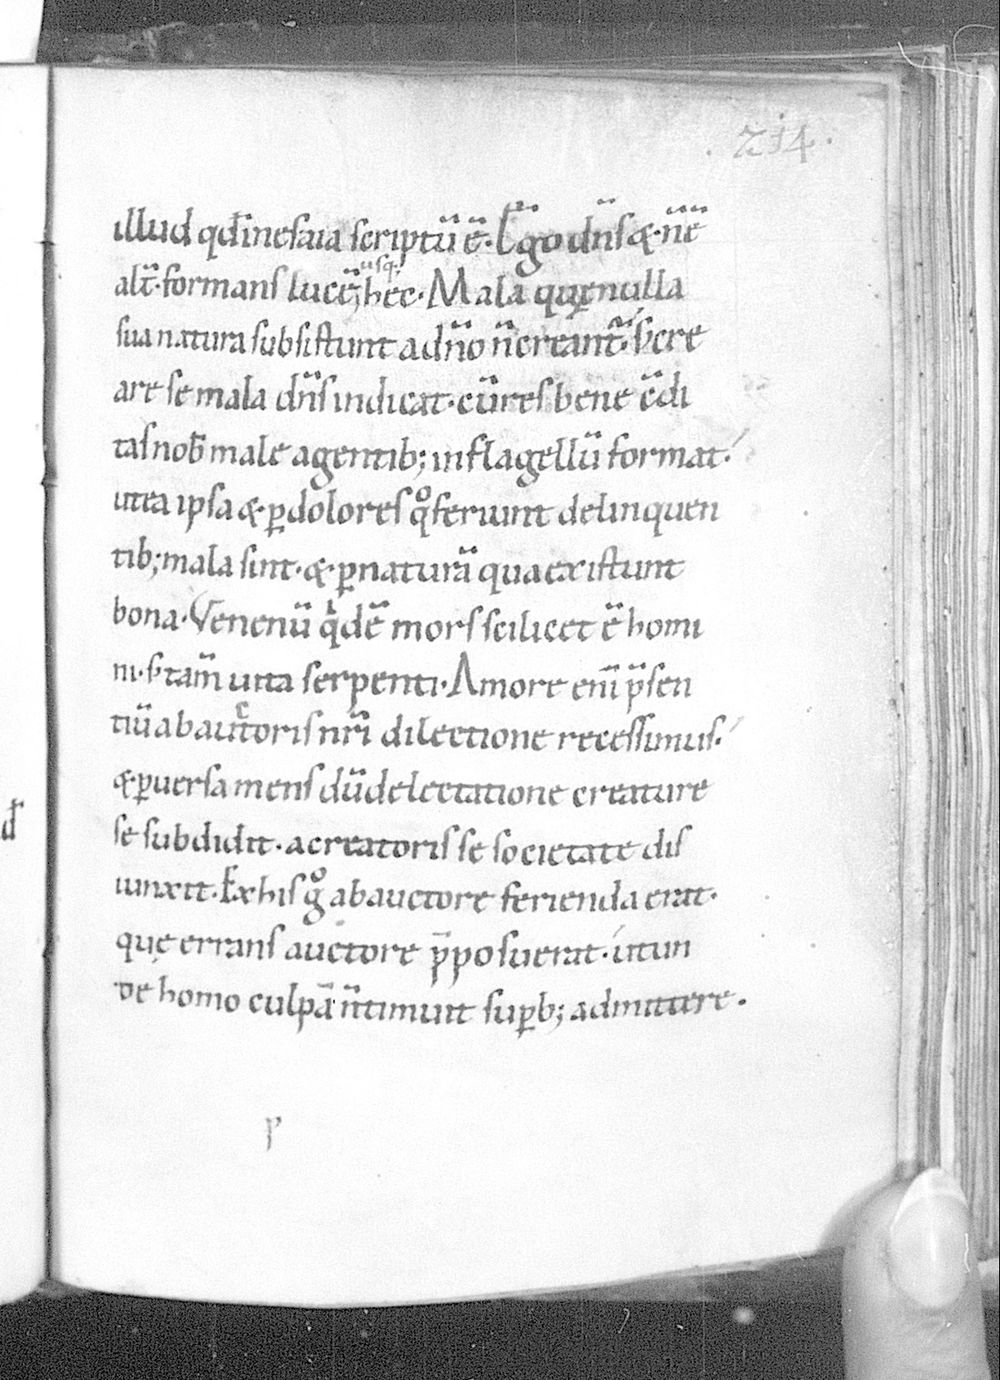 . 214 .
illud qđ inesaia scriptū ē. Ego dn̄s & n̄ ē
alt̄. formans lucē; usq; hęc. Mala quę nulla
sua natura subsistunt adn̄o n̄ creant̄. s; cre
are se mala dn̄s indicat. cū res bene c̄di
tas nob̄ male agentib; in flagellū format.
ut ea ipsa & ꝑ dolores qͦ feriunt delinquen
tib; mala sint. & ꝑ naturā qua existunt
bona. Venenū qͥdē mors scilicet ē homi
ni. s; tam̄ uita serpenti. Amore eni͞ p̄sen
tiū ab auctoris nr̄i dilectione recessimus.
& ꝑuersa mens dū delectatione creature
se subdidit. a creatoris se societate dis
iunxit. Ex his gͦ ab auctore ferienda erat.
quę errans auctore p̄posuerat. ut un
de homo culpā n̄ timuit suꝑb; admittere.
d̄